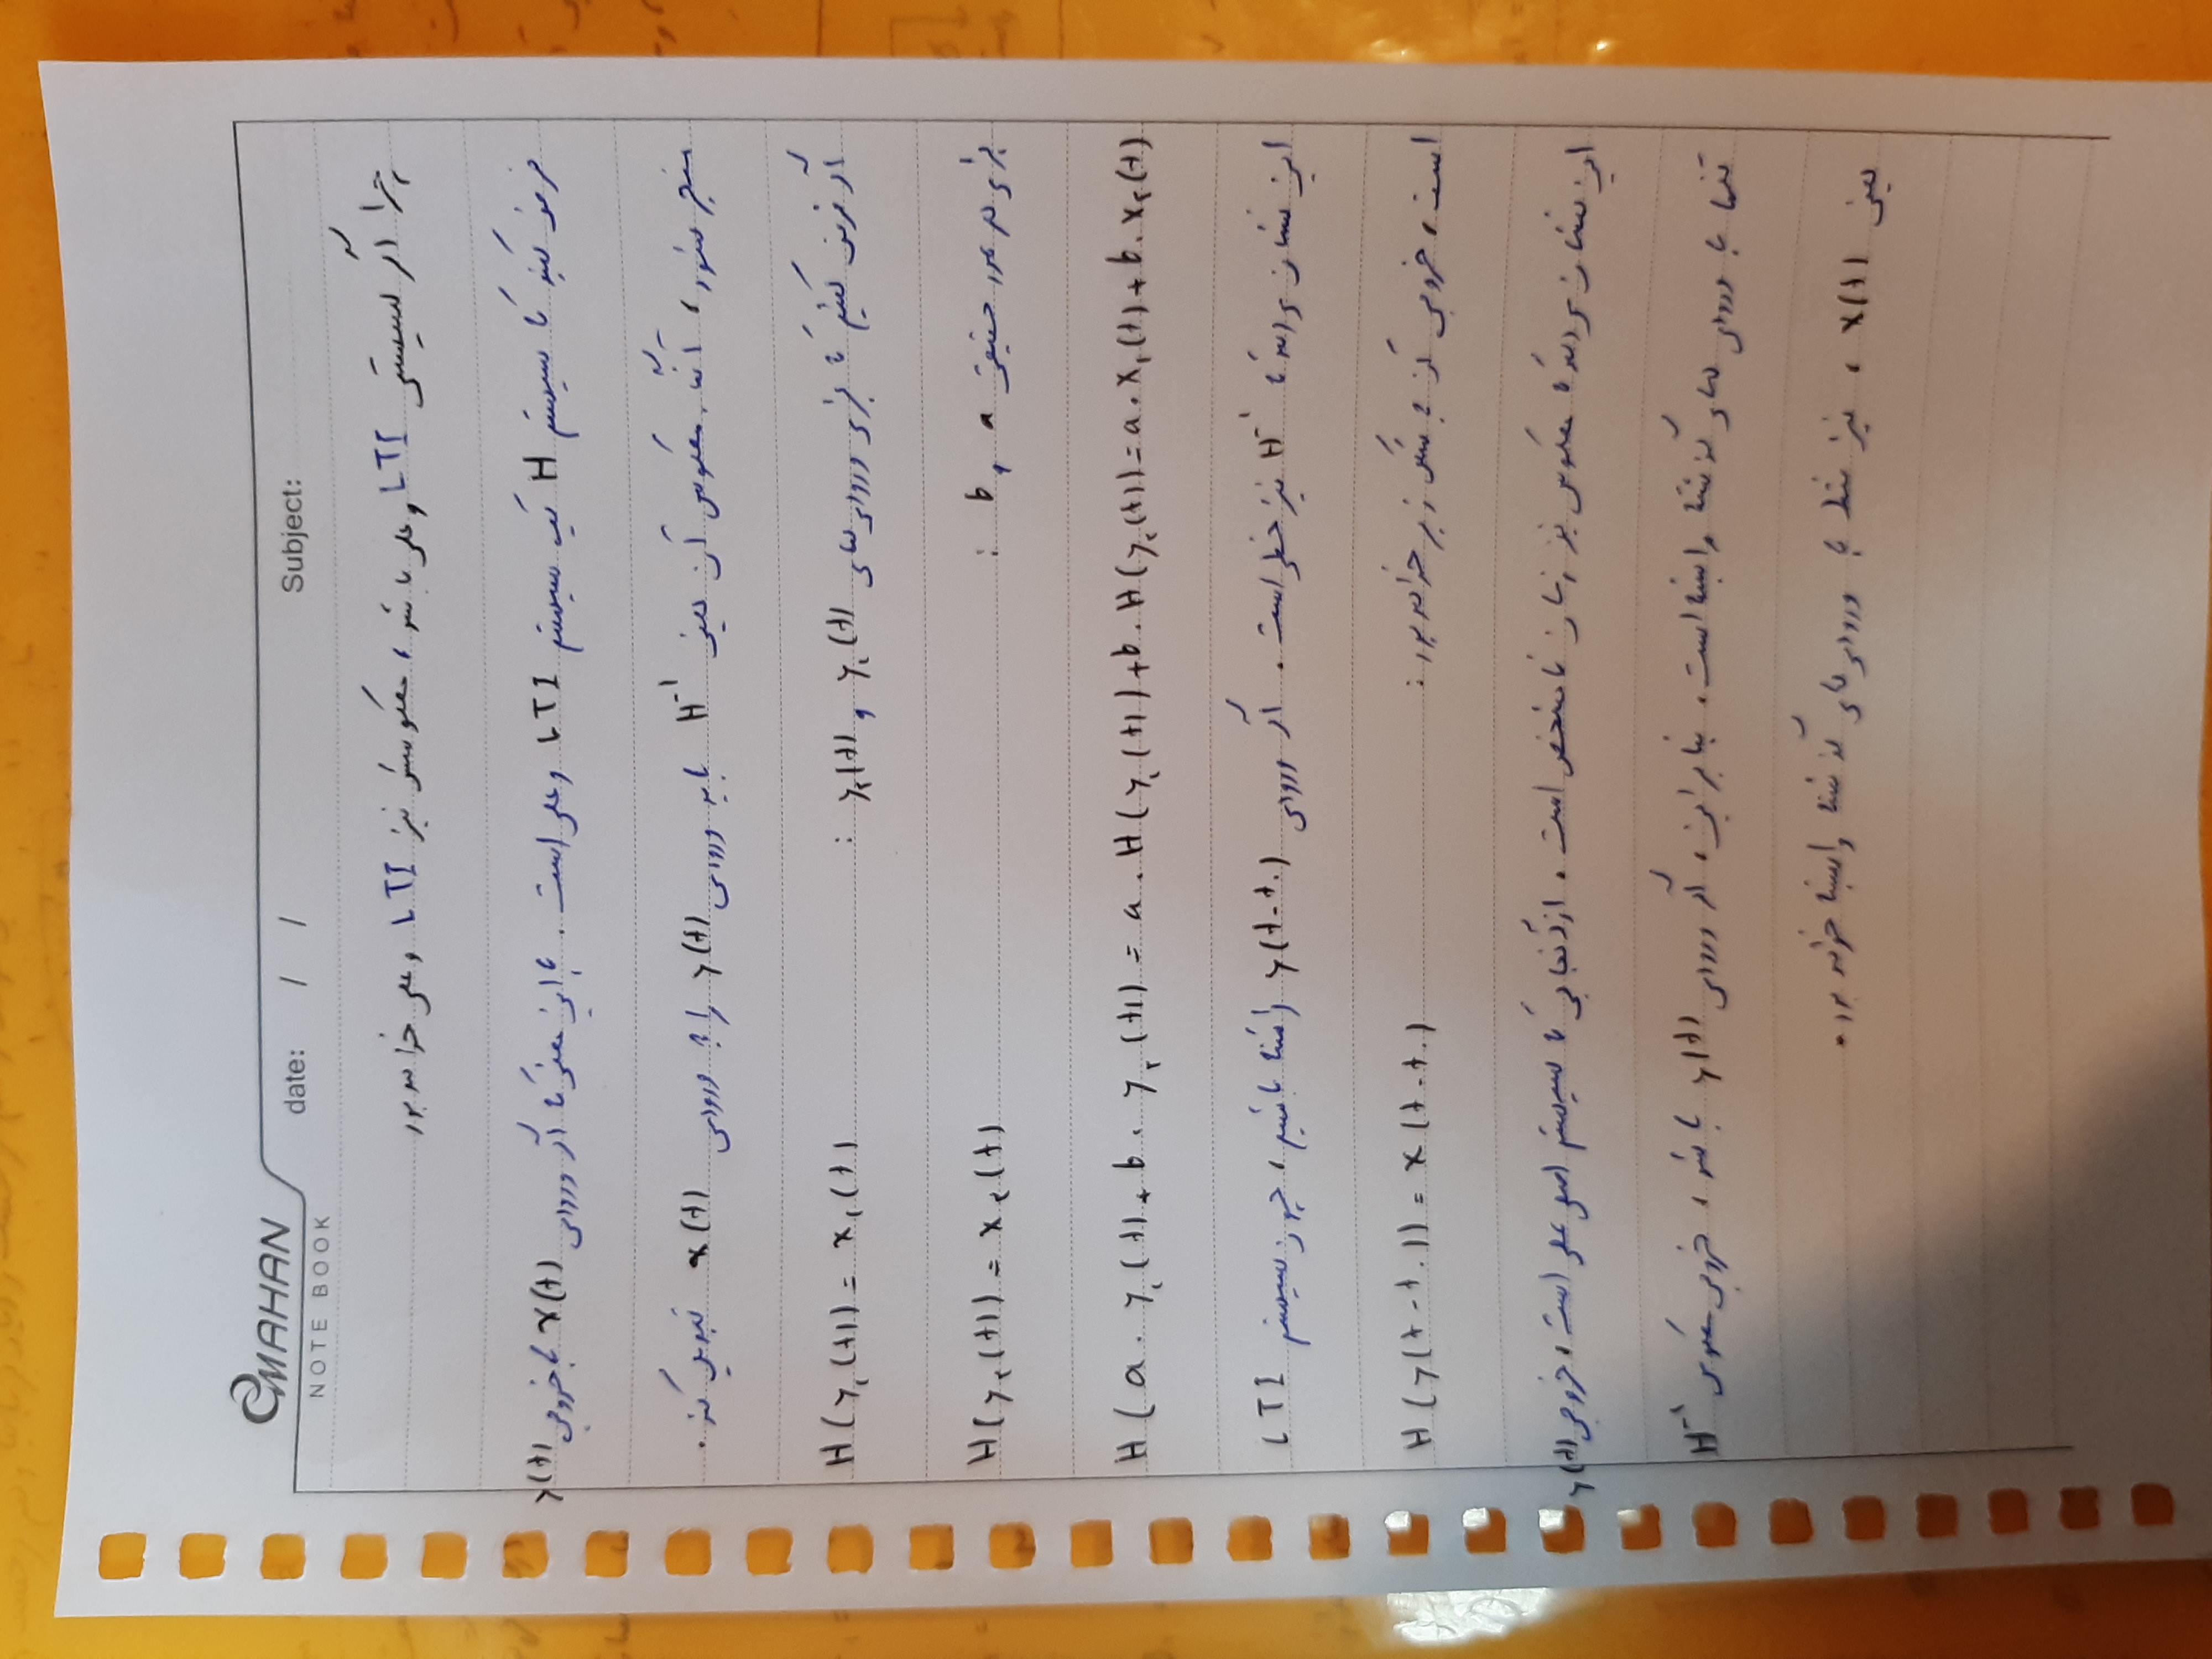 MAHAN
NOTE BOOK
date: / /
Subject:
چرا اگر سیستمی LTI و علی باشد، معکوسش نیز LTI و علی خواهد بود
فرض کنید که سیستم H یک سیستم LTI و علی است. به این معنی که اگر ورودی x(t) به خروجی y(t)
منجر شود، آنگاه معکوس آن یعنی H⁻¹ باید ورودی y(t) را به ورودی x(t) تبدیل کند.
اگر فرض کنیم که برای ورودی های y₁(t) و y₂(t) : H(y₁(t)) = x₁(t)
برای هر عدد حقیقی a و b : H(y₂(t)) = x₂(t)
H(a . y₁(t) + b . y₂(t)) = a . H(y₁(t)) + b . H(y₂(t)) = a . x₁(t) + b . x₂(t)
این نشان می دهد که H⁻¹ نیز خطی است. اگر ورودی y(t-t₀) داشته باشیم، چون سیستم LTI
است، خروجی آن به شکل زیر خواهد بود: H(y(t-t₀)) = x(t-t₀)
این نشان می دهد که معکوس نیز زمان نامتغیر است. از آنجایی که سیستم اصلی علی است، خروجی y(t)
تنها به ورودی های گذشته وابسته است. بنابراین، اگر ورودی y(t) باشد، خروجی معکوس H⁻¹
یعنی x(t)، نیز فقط به ورودی های گذشته وابسته خواهد بود.